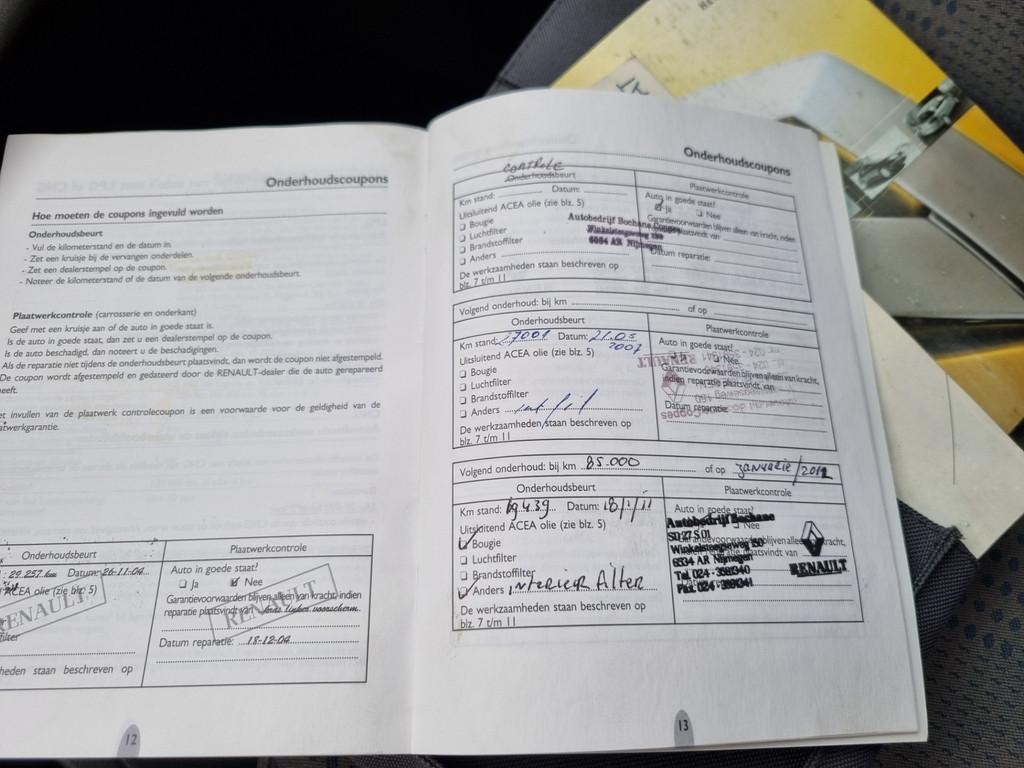 Onderhoudscoupons
Hoe moeten de coupons ingevuld worden
Onderhoudsbeurt
- Vul de kilometerstand en de datum in.
- Zet een kruisje bij de vervangen onderdelen.
- Zet een dealerstempel op de coupon.
- Noteer de kilometerstand of de datum van de volgende onderhoudsbeurt.
Plaatwerkcontrole (carrosserie en onderkant)
Geef met een kruisje aan of de auto in goede staat is.
Is de auto in goede staat, dan zet u een dealerstempel op de coupon.
Is de auto beschadigd, dan noteert u de beschadigingen.
Als de reparatie niet tijdens de onderhoudsbeurt plaatsvindt, dan wordt de coupon niet afgestempeld.
De coupon wordt afgestempeld en gedateerd door de RENAULT-dealer die de auto gerepareerd
heeft.
et invullen van de plaatwerk controlecoupon is een voorwaarde voor de geldigheid van de
atwerkgarantie.
Onderhoudsbeurt
: 29.257 km Datum: 26-11-04
ACEA olie (zie blz. 5)
RENAULT
filter
heden staan beschreven op
Plaatwerkcontrole
Auto in goede staat?
Ja Nee
Garantievoorwaarden blijven alleen van kracht, indien
reparatie plaatsvindt van
RENAULT
Datum reparatie: 18-12-04
12
Onderhoudscoupons
controle
Onderhoudsbeurt
Km stand: Datum:
Uitsluitend ACEA olie (zie blz. 5)
Bougie
Luchtfilter
Brandstoffilter
Anders
De werkzaamheden staan beschreven op
blz. 7 t/m 11
Autobedrijf Bochane
Winkelsteegseweg 150
6534 AR Nijmegen
Plaatwerkcontrole
Auto in goede staat?
Ja Nee
Garantievoorwaarden blijven alleen van kracht, indien
reparatie plaatsvindt van
Datum reparatie:
Volgend onderhoud: bij km of op
Onderhoudsbeurt
Km stand: 27001 Datum: 21.05
2007
Uitsluitend ACEA olie (zie blz. 5)
Bougie
Luchtfilter
Brandstoffilter
Anders
De werkzaamheden staan beschreven op
blz. 7 t/m 11
Plaatwerkcontrole
Auto in goede staat?
Ja Nee
RENAULT
Garantievoorwaarden blijven alleen van kracht,
indien reparatie plaatsvindt van
Datum reparatie:
Volgend onderhoud: bij km 85.000 of op januarie/2012
Onderhoudsbeurt
Km stand: 69439 Datum: 18/1/11
Uitsluitend ACEA olie (zie blz. 5)
Bougie
Luchtfilter
Brandstoffilter
Anders interieur filter
De werkzaamheden staan beschreven op
blz. 7 t/m 11
Plaatwerkcontrole
Auto in goede staat?
Nee
Autobedrijf Bochane
Winkelsteegseweg 150
6534 AR Nijmegen
RENAULT
13